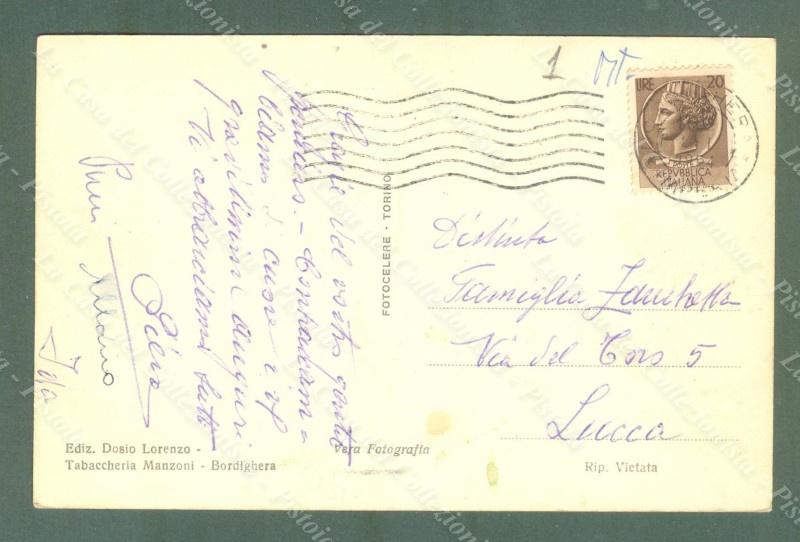 1
LIRE 20
REPVBBLICA
ITALIANA
Grazie del vostro gentile
pensiero. - Contraccam-
biamo di cuore i vs
graditissimi auguri
Ti abbracciamo tutti
Piera
Ida
FOTOCELERE - TORINO
Distinta
Famiglia
Via del 5
Lucca
Ediz. Dosio Lorenzo -
Tabaccheria Manzoni - Bordighera
Vera Fotografia
Rip. Vietata
La Casa del Collezionista - Pistoia